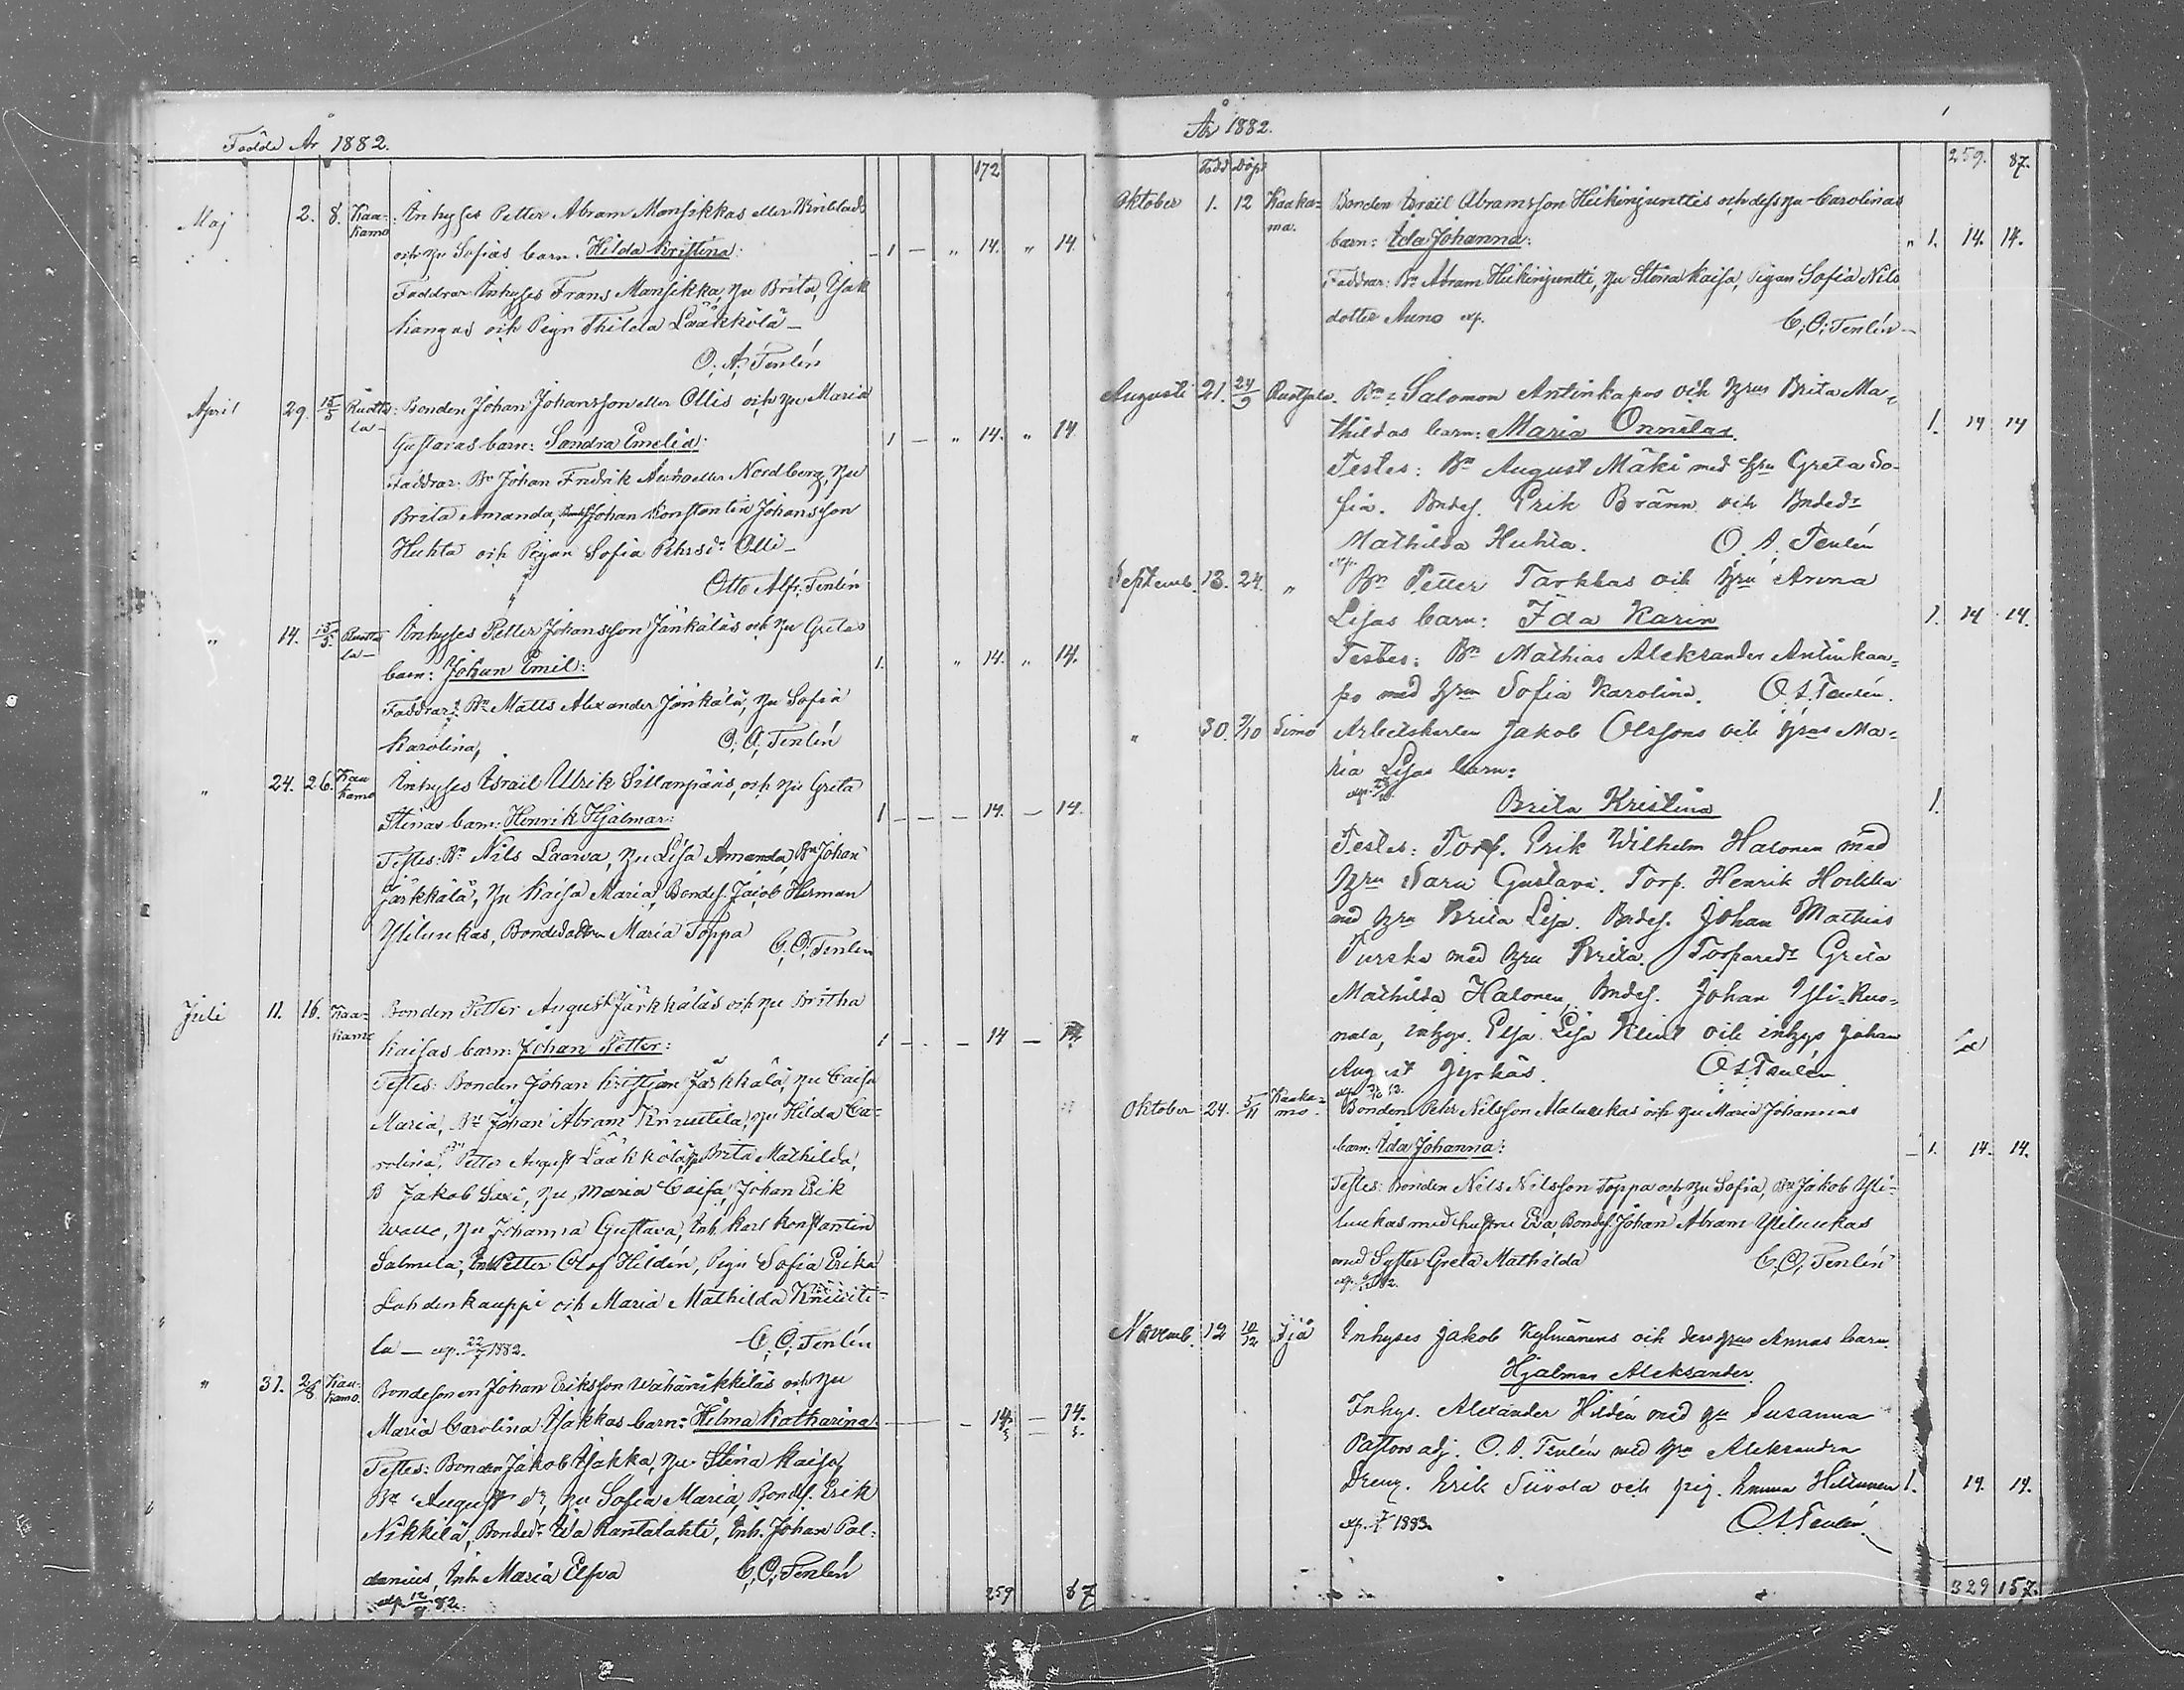 Födde År 1882.
172
Maj 2. 8. Kaa-
kamo
Inhyses Petter Abram Mansikkas eller Winblads
och hu Sofias barn. Hilda Kristina: 1 — „ 14. „ 14.
Faddrar Inhyses Frans Mansikka, hu Brita, Isak
kangas och Pign Thilda Lääkkölä —
O. A. Tenlén
April 29. 15/5 Ruotta
la —
Bonden Johan Johansson eller Ollis och hu Maria
Gustavas barn: Sandra Emelia: 1 — „ 14. „ 14
Faddrar: Bn Johan Fredrik Auno eller Nordberg, hu
Brita Amanda, Johan Konstantin Johansson
Huhta och Pigan Sofia Pehrsdr Olli —
Otto Alfr. Tenlén
„ 14. 15/5. Ruotta
la —
Inhyses Petter Johansson Jänkäläs och hu Gretas
barn: Johan Emil: 1. „ 14. „ 14.
Faddrar: Bn Matts Alexander Jänkälä, hu Sofia
Karolina, O. A. Tenlén
„ 24. 26. Kaa
kamo
Inhyses Israil Ulrik Sillanpääs, och hu Greta
Stinas barn: Henrik Hjalmar: 1 — — — 14. — 14.
Testes: Bn Nils Laarva, hu Lisa Amanda, Bn Johan
Järkkälä, hu Kaisa Maria, Bondes. Jacob Herman
Yliluukas, Bondedottren Maria Toppa
C. O. Tenlén
Juli 11. 16. Kaa-
kamo
Bonden Petter August Järkkäläs och hu Britha
Kaisas barn: Johan Petter: 1 — — 14 — 14.
Testes: Bonden Johan Kristian Järkkälä, hu Caisa
Maria, Bn Johan Abram Knuutila, hu Hilda Ca-
rolina, Petter August Lääkkölä, hu Brita Mathilda,
B Jakob Sixi, hu Maria Caisa, Johan Erik
Walle, hu Johanna Gustava, Inh. Karl Konstantin
Salmela, Inh Petter Olof Hildén, Pign Sofia Erika
Lahdenkauppi och Maria Mathilda Knuuti-
la — exp. 22/7 1882. C. O. Tenlén
„ 31. 2/8 Kaa-
kamo.
Bondesonen Johan Eriksson Wähänikkiläs och hu
Maria Carolina Isakkas barn: Hilma Katharina — — — 14. — 14.
Testes: Bonden Jakob Isakka, hu Stina Kaisa,
Bn August dr, hu Sofia Maria, Bondes. Erik
Nikkilä, Bondedr Ida Rantalahti, Inh. Johan Pal-
danius, Inh Maria Elfva C. O. Tenlén
exp 12/8 82.
259 87
År 1882.
Född Döpt 259. 87.
Oktober 1. 12 Kaaka-
ma.
Bonden Israil Abramsson Heikinjunttis och dess hu Carolinas
barn: Ida Johanna: „ 1. 14. 14.
Faddrar: Bn Abram Heikinjuntti, hu Stina Kaisa, Pigan Sofia Nils
dotter Auno exp. C. O. Tenlén —
Augusti 21. 24/9 Ruottala.
Bn Salomon Antinkapos och hrus Brita Ma-
thildas barn: Maria Onnilas. 1. 14 14
Testes: Bn August Mäki med hru Greta So-
fia. Bndes. Erik Brännn och Bndedr
Mathilda Huhta. O. A. Tenlén
Septemb. 13. 24. „
exp.
Bn Petter Tarkkas och hru Anna
Lisas barn: Ida Karin 1. 14 14.
Testes: Bn Mathias Aleksander Antinkaa-
po med hru Sofia Karolina. O. A. Tenlén.
„ 30. 9/10 Simo
Arbetskarlen Jakob Olssons och hrus Ma-
ria Lisas barn:
Brita Kristina 1.
Testes: Torp. Erik Wilhelm Halonen med
hru Sara Gustava. Torp. Henrik Hoikka
med hru Brita Lisa. Bndes. Johan Mathias
Turska med hru Brita. Torparedr Greta
Mathilda Halonen, Bndes. Johan Yli-Ruo-
nala, inhys. Elsa Lisa Klint och inhys Johan
August Jyrkäs. O. A. Tenlén
Oktober 24. 5/11 Kaaka-
mo.
Bonden Pehr Nilsson Alaluukas och hu Maria Johannas
barn: Ida Johanna: — 1. 14. 14.
Testes: Bonden Nils Nilsson Toppa och hu Sofia, Bn Jakob Yli-
luukas med hustru Eva, Bondes. Johan Abram Yliluukas
med Syster Greta Mathilda C. O. Tenlén
Novemb. 12 10/12 Ijä
Inhyses Jakob Kylmänens och dess hrus Annas barn
Hjalmar Aleksander
Inhys. Alexander Hildén med hu Susanna
Pastors adj. O. A. Tenlén med hru Aleksandra
Dreng. Erik Siivola och pig. Emma Hiltunen 1. 14. 14.
exp. 1883. O. A. Tenlén
329 157.